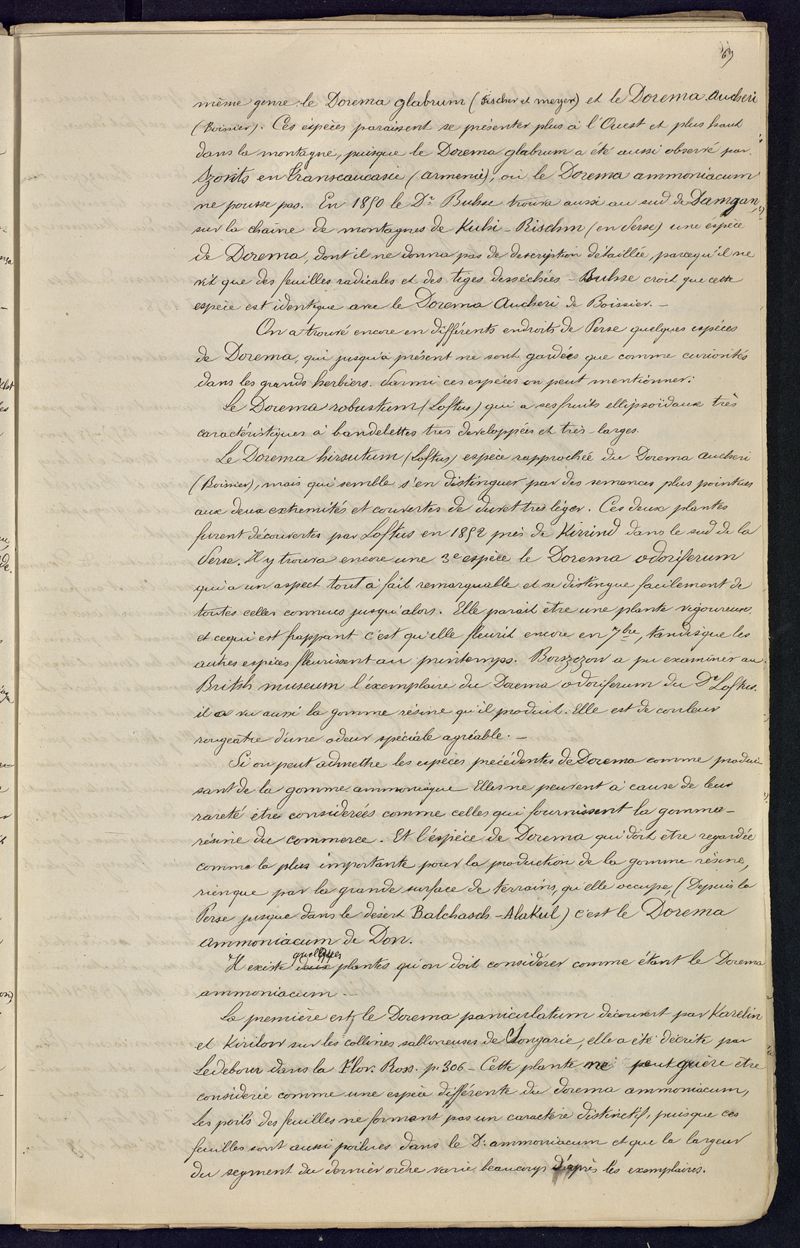 63
même genre: le Dorema glabrum (Fischer et meyer) et le Dorema Aucheri
(Boissier). Ces espèces paraissent se présenter plus à l'Ouest et plus haut
dans la montagne, puisque le Dorema glabrum a été aussi observé par
Szovits en Transcaucasie (Armenie), où le Dorema ammoniacum
ne pousse pas. En 1850 le Dr Buhse trouva aussi au sud de Damgan,
sur la chaine de montagnes de Kuhi-Rischm (en Perse) une espèce
de Dorema, dont il ne donna pas de description détaillée, parcequ'il ne
vit que des feuilles radicales et des tiges desséchées - Buhse croit que cette
espèce est identique avec le Dorema Aucheri de Boissier. -
On a trouvé encore en différents endroits de Perse quelques espèces
de Dorema, qui jusqu'à présent ne sont gardées que comme curiosités
dans les grands herbiers. Parmi ces espèces on peut mentionner:
Le Dorema robustum (Loftus) qui a ses fruits ellipsoïdaux très
caractéristiques à bandelettes très developpées et très-larges.
Le Dorema hirsutum (Loftus) espèce rapprochée du Dorema Aucheri
(Boissier), mais qui semble s'en distinguer par des semences plus pointues
aux deux extremités et couvertes de duvet très léger. Ces deux plantes
furent découvertes par Loftus en 1852 près de Kirrind dans le sud de la
Perse. Il y trouva encore une 3e espèce le Dorema odoriferum
qui a un aspect tout à fait remarquable et se distingue facilement de
toutes celles connues jusqu'alors. Elle parait être une plante vigoureuse,
et cequi est frappant c'est qu'elle fleurit encore en 7bre, tandisque les
autres espèces fleurissent au printemps. Borszczow a pu examiner au
British museum l'exemplaire du Dorema odoriferum du Dr Loftus.
il a vu aussi la gomme résine qu'il produit. Elle est de couleur
rougeâtre d'une odeur spéciale agréable. -
Si on peut admettre les espèces précédentes de Dorema comme produi
sant de la gomme ammoniaque Elles ne peuvent à cause de leur
rareté être considerées comme celles qui fournissent la gomme-
résine du commerce. Et l'espèce de Dorema qui doit être regardée
comme la plus importante pour la production de la gomme résine,
rien que par la grande surface de terrains, qu'elle occupe, (Depuis la
Perse jusque dans le désert Balchasch-Alakul) c'est le Dorema
ammoniacum de Don.
quelques
Il existe deux plantes qu'on doit considérer comme étant le Dorema
ammoniacum. -
La première est, le Dorema paniculatum découvert par Karelin
et Kirilow sur les collines sabloneuses de Songarie, elle a été décrite par
Ledebour dans la Flor. Ross. p. 306 - Cette plante ne peut guère être
considerée comme une espèce différente du Dorema ammoniacum,
les poils des feuilles ne formant pas un caractère distinctif, puisque ces
feuilles sont aussi poilues dans le D. ammoniacum et que la largeur
du segment du dernier ordre varie beaucoup d'après les exemplaires.